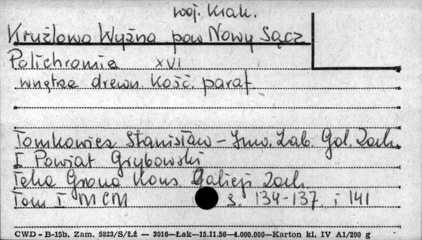 woj. Krak.
Krużlowa Wyżna pow Nowy Sącz
Polichromia XVI
wnętrze drewn. Kość. paraf.
Tomkowicz Stanisław - Inw. Zab. Gal. Zach.
I Powiat Grybowski
Teka Grona Kons Galicji Zach
Tom I MCM s. 134-137 i 141
CWD - B-15b. Zam. 5823/S/Łż — 3016—Łak—15.11.56—4.000.000—Karton kl. IV A1/200 g